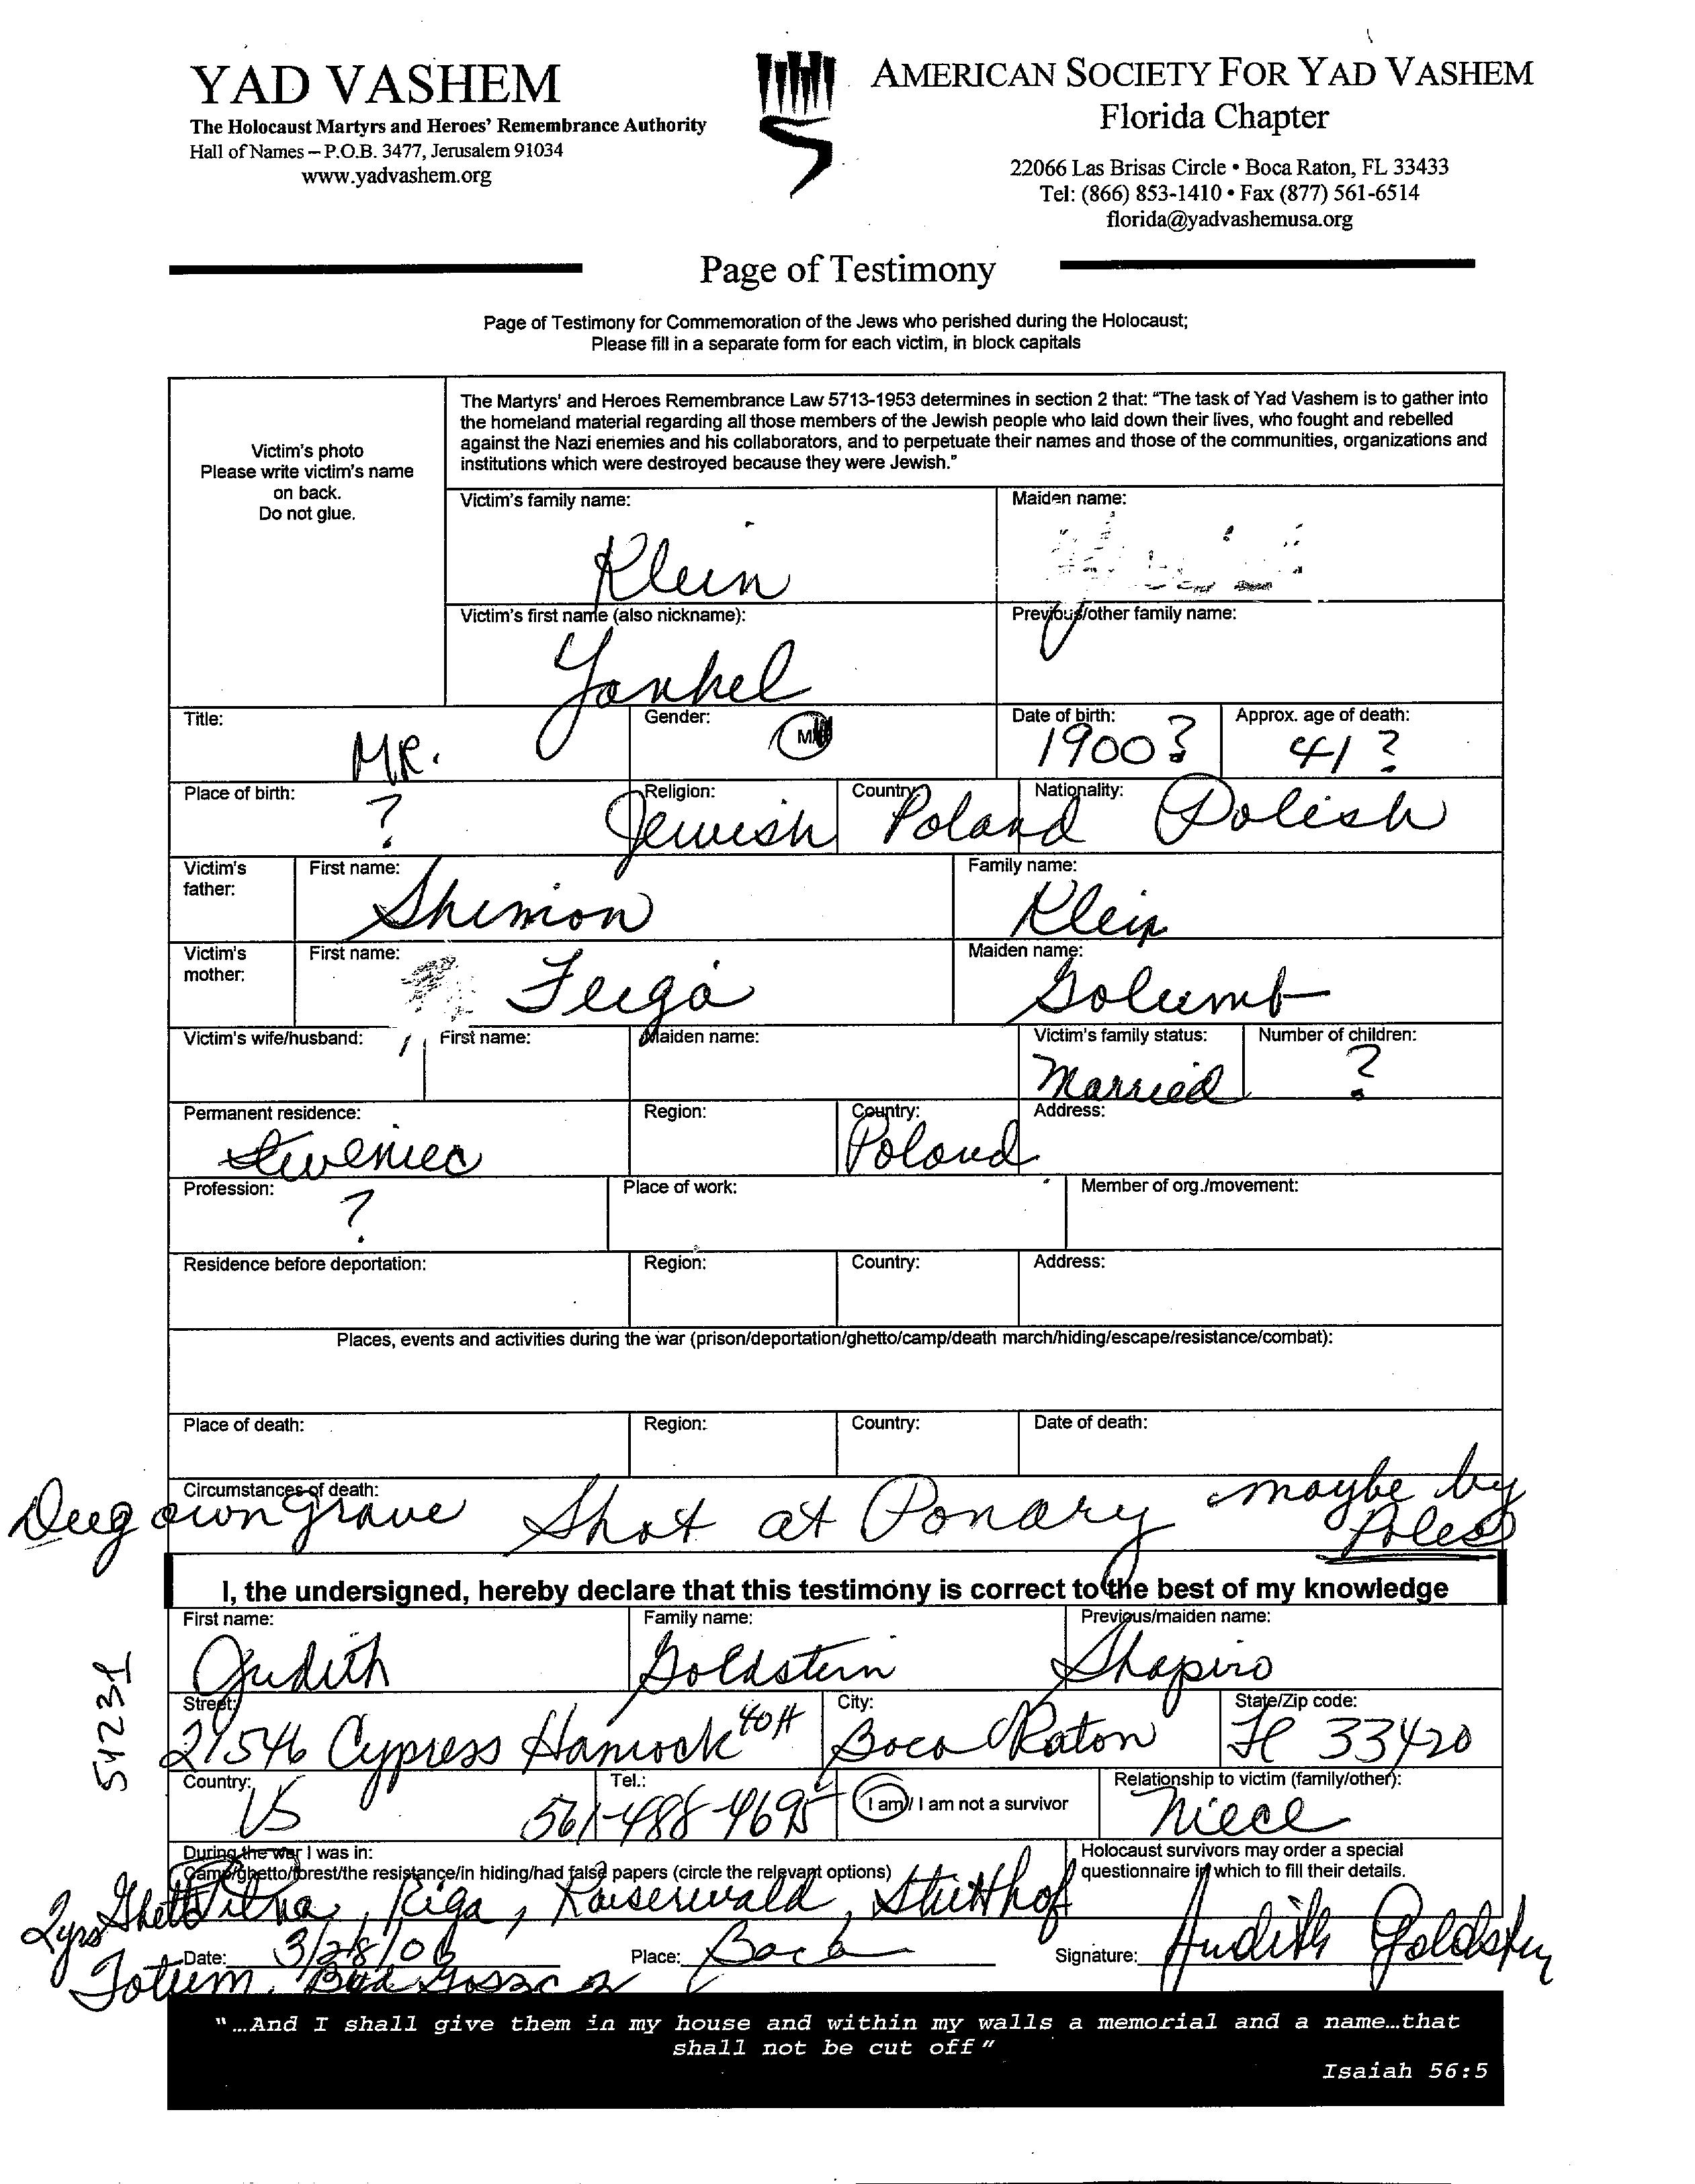 YAD VASHEM
The Holocaust Martyrs and Heroes' Remembrance Authority
Hall of Names – P.O.B. 3477, Jerusalem 91034
www.yadvashem.org
AMERICAN SOCIETY FOR YAD VASHEM
Florida Chapter
22066 Las Brisas Circle • Boca Raton, FL 33433
Tel: (866) 853-1410 • Fax (877) 561-6514
florida@yadvashemusa.org
Page of Testimony
Page of Testimony for Commemoration of the Jews who perished during the Holocaust;
Please fill in a separate form for each victim, in block capitals
Victim's photo
Please write victim's name
on back.
Do not glue.
The Martyrs' and Heroes Remembrance Law 5713-1953 determines in section 2 that: "The task of Yad Vashem is to gather into
the homeland material regarding all those members of the Jewish people who laid down their lives, who fought and rebelled
against the Nazi enemies and his collaborators, and to perpetuate their names and those of the communities, organizations and
institutions which were destroyed because they were Jewish."
Victim's family name: Maiden name:
Klein
Victim's first name (also nickname): Previous/other family name:
Yankel
Title: Gender: Date of birth: Approx. age of death:
MR. M 1900? 41?
Place of birth: Religion: Country: Nationality:
? Jewish Poland Polish
Victim's father: First name: Family name:
Shimon Klein
Victim's mother: First name: Maiden name:
Feiga Golumb
Victim's wife/husband: First name: Maiden name: Victim's family status: Number of children:
Married ?
Permanent residence: Region: Country: Address:
Poland
Profession: Place of work: Member of org./movement:
?
Residence before deportation: Region: Country: Address:
Places, events and activities during the war (prison/deportation/ghetto/camp/death march/hiding/escape/resistance/combat):
Place of death: Region: Country: Date of death:
Circumstances of death:
Deeg own grave Shot at Ponary maybe by
Poles
I, the undersigned, hereby declare that this testimony is correct to the best of my knowledge
First name: Family name: Previous/maiden name:
Judith Goldstein Shapiro
Street: City: State/Zip code:
21546 Cypress Hamock 40H Boca Raton Fl 33420
Country: Tel.: I am / I am not a survivor Relationship to victim (family/other):
US 561-488-4695 Niece
54231
During the war I was in:
Camp/ghetto/forest/the resistance/in hiding/had false papers (circle the relevant options)
Holocaust survivors may order a special
questionnaire in which to fill their details.
2yrs Ghetto Vilna, Riga, Kaiserwald, Stutthof
Date: 3/28/06 Place: Boca Signature: Judith Goldstein
"…And I shall give them in my house and within my walls a memorial and a name…that
shall not be cut off"
Isaiah 56:5